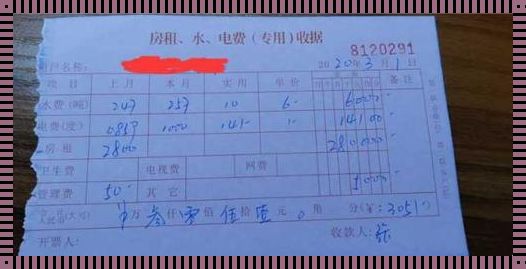 房租、水、电费(专用)收据
8120291
用户名称: 2020年3月1日
项目 上月 本月 实用 单价 备注
水费(吨) 247 257 10 6- 6000
电费(度) 0859 1000 141- 1- 14100
房租 2800 280000
卫生费 电视费 网费
管理费 50- 其它 5000
万叁仟零佰伍拾壹元0角 分(¥:3051-)
开票人: 收款人: